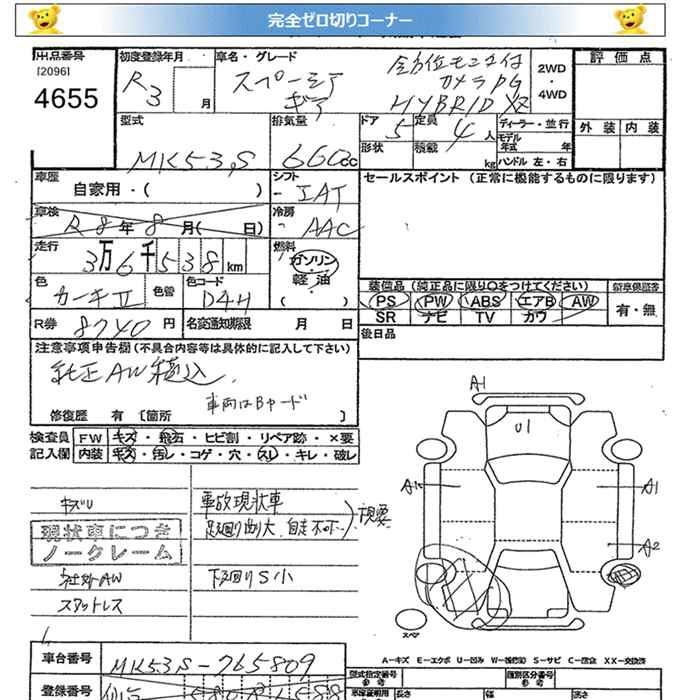 完全ゼロ切りコーナー
出品番号
[2096]
4655
初度登録年月
R3 月
車名・グレード
スペーシア
ギア
全方位モニタ付
カメラPG
HYBRID XZ
2WD
・
4WD
評価点
外装 内装
型式
MK53S
排気量
660cc
ドア
5
形状
定員
4人
積載
kg
ディーラー・並行
モデル
年式 年
ハンドル 左・右
車歴
自家用・( )
シフト
IAT
セールスポイント (正常に機能するものに限ります)
車検
R8年8月( 日)
冷房
AAC
走行
3万6千538km
燃料
ガソリン
・
軽油
( )
色
カーキⅡ
色替
色コード
D4H
R券 8740円
名変通知期限 月 日
装備品 (純正品に限り○をつけてください)
PS PW ABS エアB AW
SR ナビ TV カワ
新車保証書
有・無
後日品
注意事項申告欄 (不具合内容等は具体的に記入して下さい)
純正AW積込
車両はBヤード
修復歴 有 [箇所 ]
検査員
記入欄
FW キズ・飛石・ヒビ割・リペア跡・×要
内装 キズ・汚レ・コゲ・穴・スレ・キレ・破レ
キズU
現状車につき
ノークレーム
社外AW
スタットレス
事故現状車
足廻り曲り大 自走不可
現要
下廻りS小
A1
U1
A1
A1
A2
スペア
A-キズ E-エクボ U-凹み W-補修跡 S-サビ C-腐食 XX-交換済
車台番号
MK53S-765809
登録番号
型式指定番号
参考
類別区分番号
参考
長さ
幅
高さ